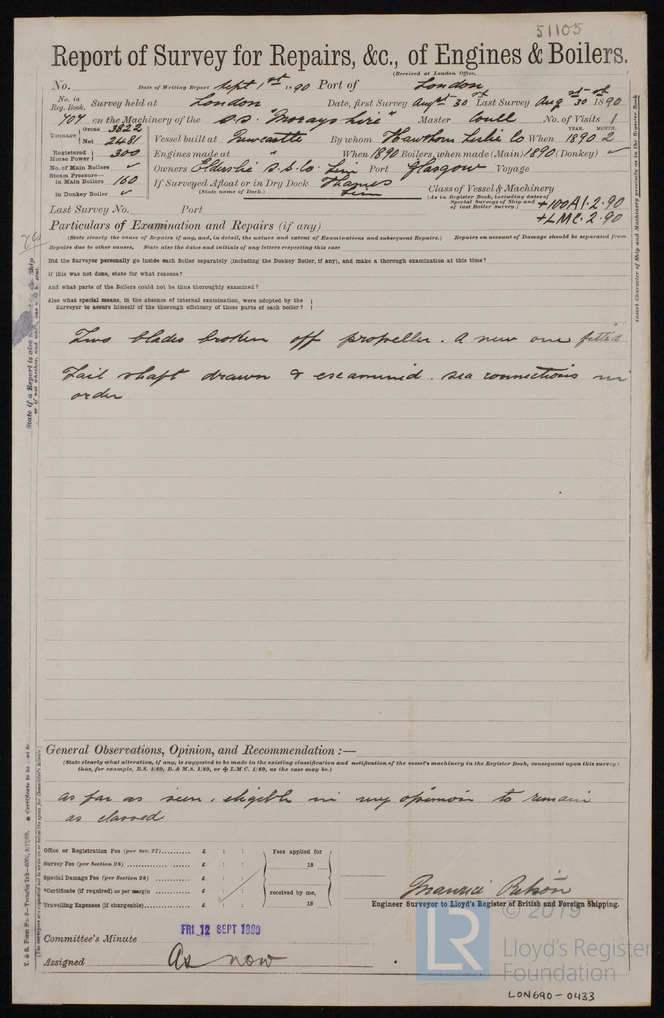 51105
Report of Survey for Repairs, &c., of Engines & Boilers.
(Received at London Office,
No. Date of Writing Report Sept 1st 1890 Port of London
No. in Reg. Book. Survey held at London Date, first Survey Augst 30th Last Survey Aug 30th 1890
707 on the Machinery of the S.S. "Morayshire" Master Coull No. of Visits 1
Tonnage Gross 3822 Net 2481 Vessel built at Newcastle By whom Hawthorn Leslie Co When 1890 2 YEAR. MONTH.
Registered Horse Power 300 Engines made at " When 1890 Boilers, when made (Main) 1890 (Donkey) ✓
No. of Main Boilers ✓ Owners Elderslie S.S. Co. Lim Port Glasgow Voyage
Steam Pressure— in Main Boilers 160 If Surveyed Afloat or in Dry Dock Thames
in Donkey Boiler ✓ (State name of Dock.) Lim
Class of Vessel & Machinery
(As in Register Book, including dates of Special Surveys of Ship and of last Boiler Survey.) +100A1-2.90
+LMC-2-90
Last Survey No. Port
Particulars of Examination and Repairs (if any)
(State clearly the cause of Repairs if any, and, in detail, the nature and extent of Examinations and subsequent Repairs.) Repairs on account of Damage should be separated from
Repairs due to other causes. State also the dates and initials of any letters respecting this case
Did the Surveyor personally go inside each Boiler separately (including the Donkey Boiler, if any), and make a thorough examination at this time?
If this was not done, state for what reasons?
And what parts of the Boilers could not be thoroughly examined?
Also what special means, in the absence of internal examination, were adopted by the
Surveyor to assure himself of the thorough efficiency of those parts of each boiler?
Two blades broken off propeller. A new one fitted
Tail shaft drawn & examined. sea connections in
order
General Observations, Opinion, and Recommendation :—
(State clearly what alteration, if any, is suggested to be made in the existing classification and notification of the vessel's machinery in the Register Book, consequent upon this survey:
thus, for example, B.S. 1/89, B. & M.S. 1/89, or + L.M.C. 1/89, as the case may be.)
as far as seen, eligible in my opinion to remain
as classed
Office or Registration Fee (per Sec. 27) £ : : Fees applied for
Survey Fee (per Section 28) £ : : 18
Special Damage Fee (per Section 28) £ : :
*Certificate (if required) as per margin £ : : received by me,
Travelling Expenses (if chargeable) £ : : 18
Maurice Ritson
Engineer Surveyor to Lloyd's Register of British and Foreign Shipping.
FRI. 12 SEPT 1890
Committee's Minute
Assigned As now
© 2019
LR
Lloyd's Register
Foundation
LON690-0433
Insert Character of Ship and Machinery precisely as in the Register Book